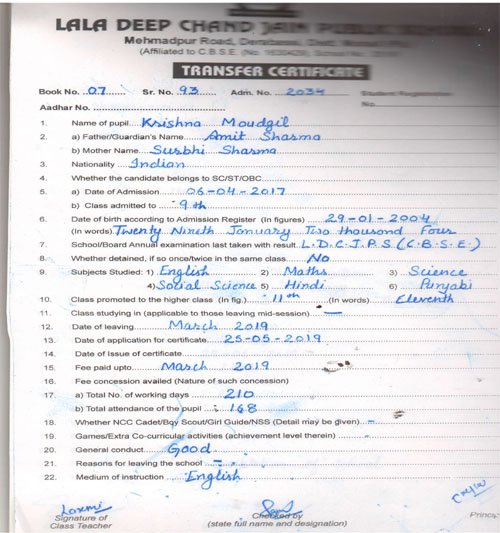 LALA DEEP CHAND JAIN PUBLIC
Mehmadpur Road,
(Affiliated to C.B.S.E.
TRANSFER CERTIFICATE
Book No. 07 Sr. No. 93 Adm. No. 2034 Student Registration
Aadhar No. No.
1. Name of pupil Krishna Moudgil
2. a) Father/Guardian's Name Amit Sharma
b) Mother Name Surbhi Sharma
3. Nationality Indian
4. Whether the candidate belongs to SC/ST/OBC
5. a) Date of Admission 06-04-2017
b) Class admitted to 9th
6. Date of birth according to Admission Register (In figures) 29-01-2004
(In words) Twenty Nineth January Two thousand Four
7. School/Board Annual examination last taken with result L.D.C.J.P.S (C.B.S.E.)
8. Whether detained, if so once/twice in the same class No
9. Subjects Studied: 1) English 2) Maths 3) Science
4) Social Science 5) Hindi 6) Punjabi
10. Class promoted to the higher class (In fig.) 11th (In words) Eleventh
11. Class studying in (applicable to those leaving mid-session) —
12. Date of leaving March 2019
13. Date of application for certificate 25-05-2019
14. Date of Issue of certificate
15. Fee paid upto March 2019
16. Fee concession availed (Nature of such concession)
17. a) Total No. of working days 210
b) Total attendance of the pupil : 168
18. Whether NCC Cadet/Boy Scout/Girl Guide/NSS (Detail may be given) –
19. Games/Extra Co-curricular activities (achievement level therein) -
20. General conduct Good
21. Reasons for leaving the school –
22. Medium of instruction English
Laxmi
Signature of Checked by Princi
Class Teacher (state full name and designation)